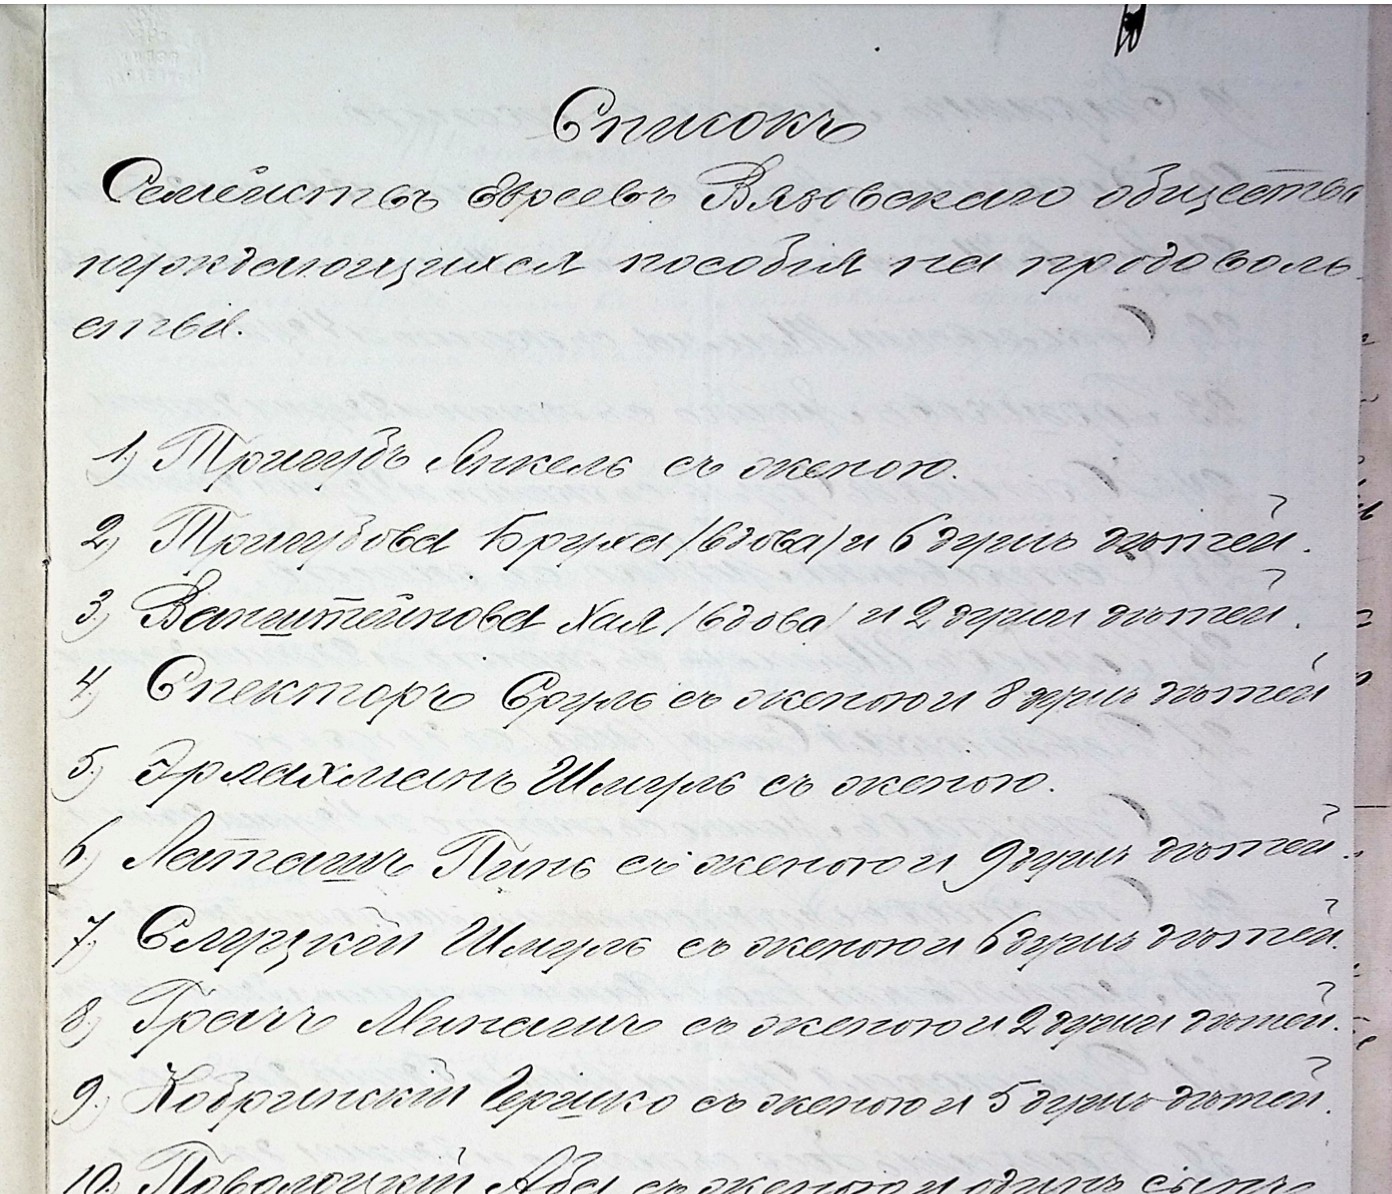 Списокъ
Семействъ Евреевъ Вязовскаго общества
нуждающихся пособія на продоволь-
ствіе.
1) Тригубъ Янкель съ женою.
2) Тригубова Бруха /вдова/ и 6 душъ дѣтей.
3) Ванштейнова Хая /вдова/ и 2 души дѣтей.
4) Спекторъ Сруль съ женою и 8 душъ дѣтей
5) Эрлахманъ Шмуль съ женою.
6) Латашъ Пинь съ женою и 9 душъ дѣтей.
7) Слуцкій Шмуль съ женою и 6 душъ дѣтей.
8) Грачъ съ женою и 2 души дѣтей.
9) Кобринскій Гершко съ женою и 5 душъ дѣтей.
10) Поволоцкій Аба съ женою и одинъ сынъ